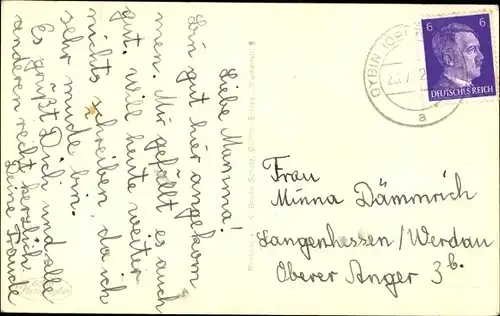 Liebe Mamma!
Bin gut hier angekom
men. Mir gefällt es auch
gut. will heute weiter
nichts schreiben, da ich
sehr müde bin.
Es grüßt Dich und alle
anderen recht herzlich
Deine Traude
OYBIN
a
6 6
DEUTSCHES REICH
Frau
Minna Dämmrich
Langenhessen/Werdau
Oberer Anger 3b.